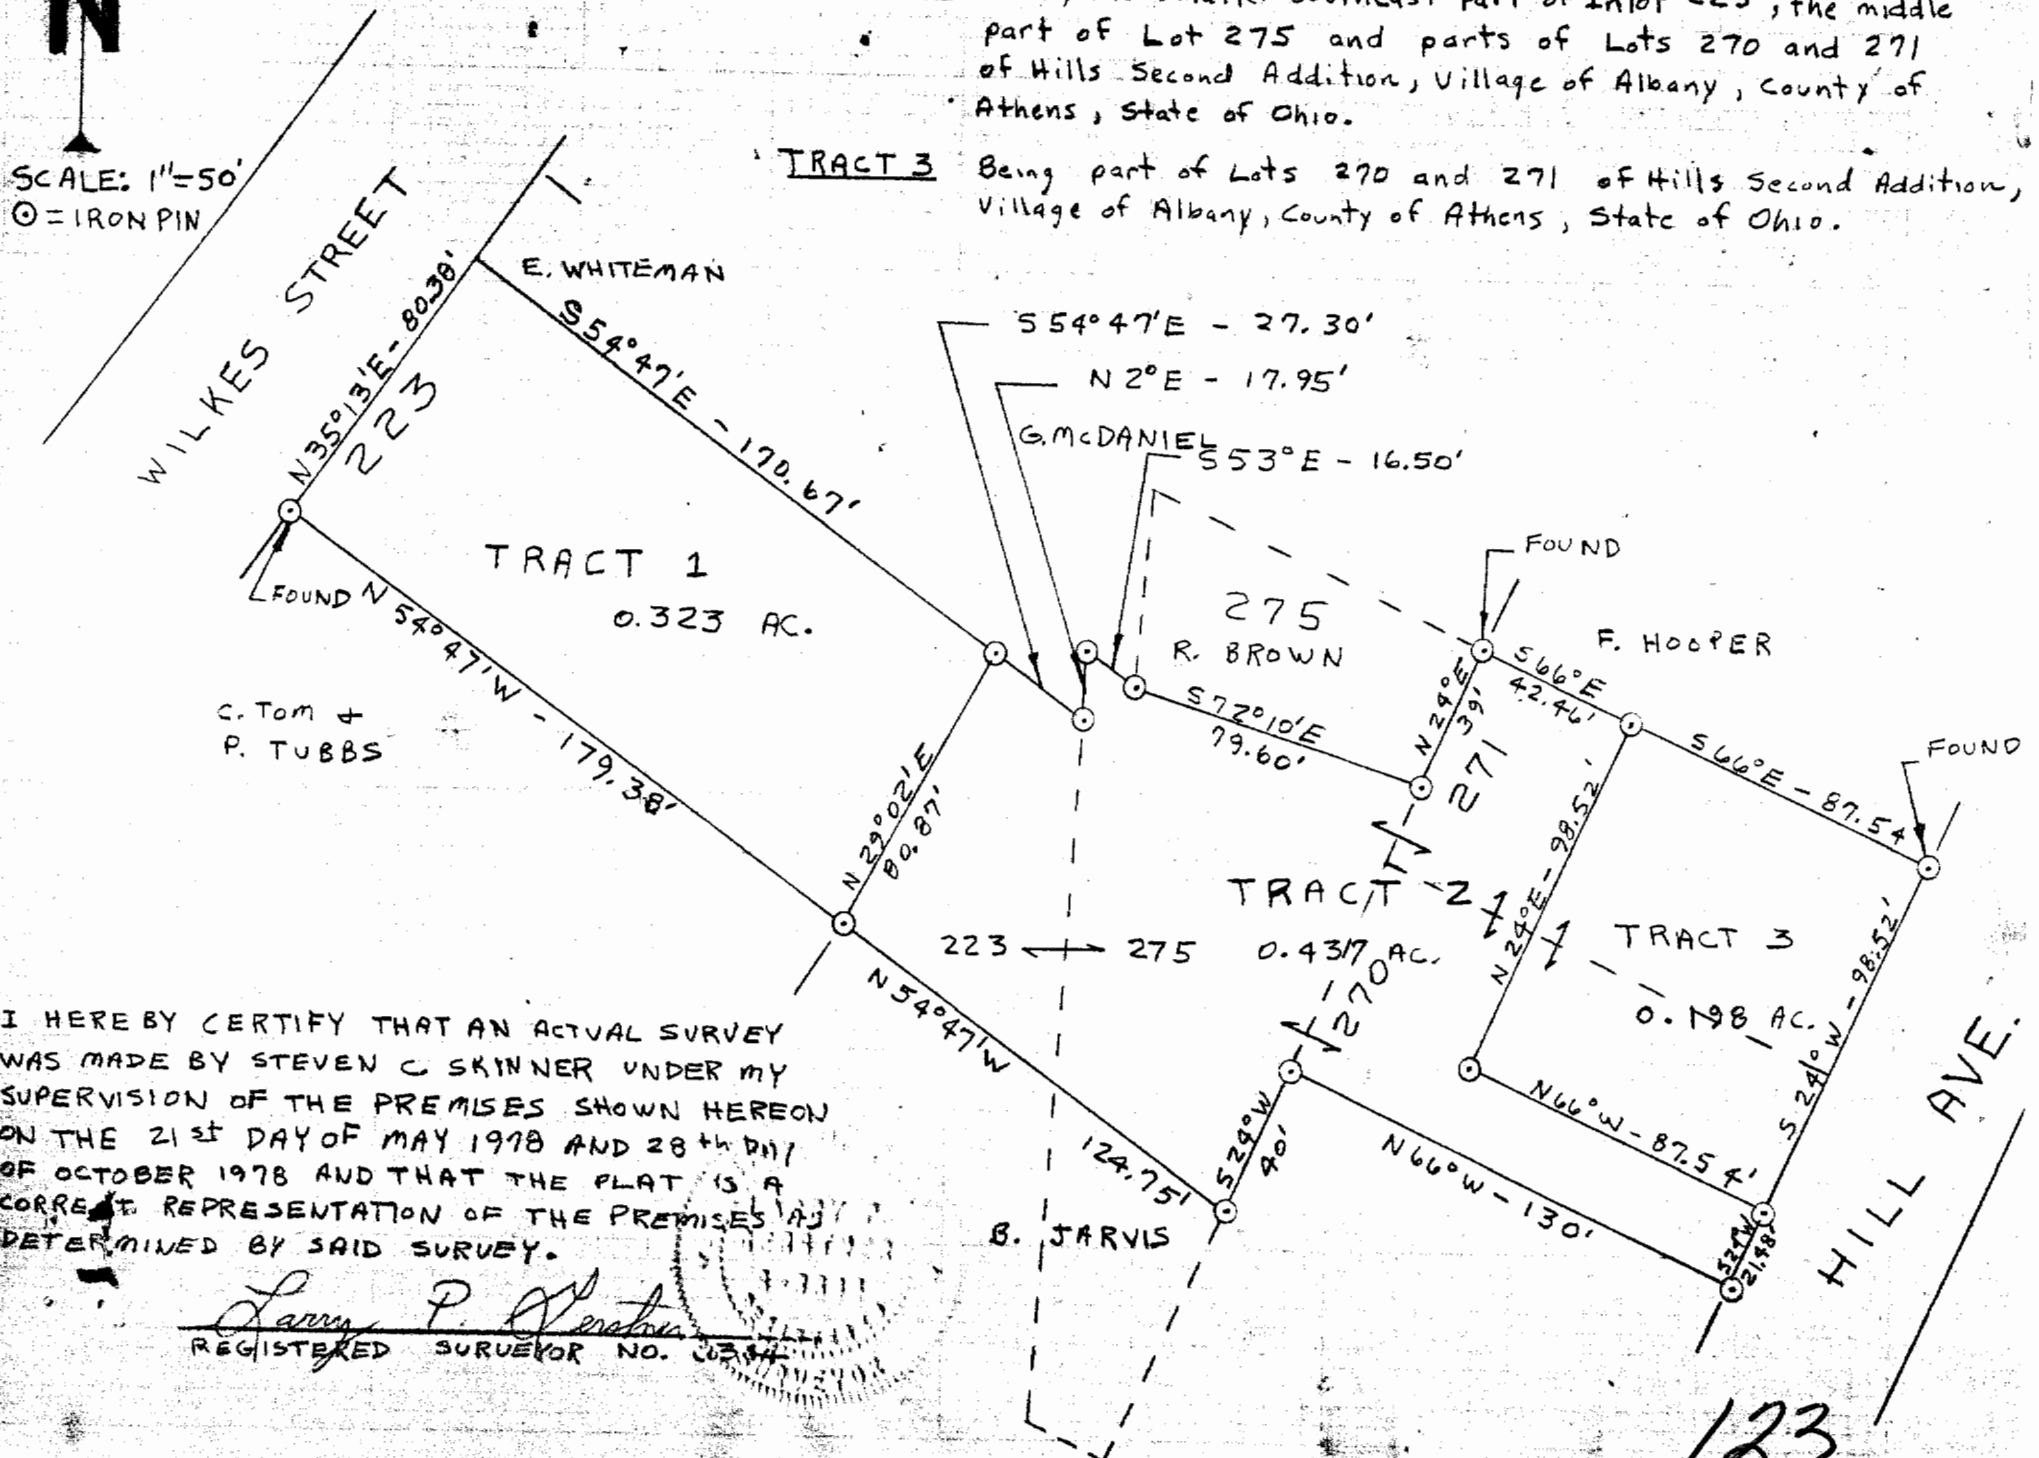 N
SCALE: 1"=50'
⊙ = IRON PIN
part of Inlot 223, the middle
part of Lot 275 and parts of Lots 270 and 271
of Hills Second Addition, Village of Albany, County of
Athens, State of Ohio.
TRACT 3 Being part of Lots 270 and 271 of Hills Second Addition,
Village of Albany, County of Athens, State of Ohio.
WILKES STREET
N 35°13'E - 80.38'
223
E. WHITEMAN
S 54°47'E - 170.67'
S 54°47'E - 27.30'
N 2°E - 17.95'
G. McDANIEL
S 53°E - 16.50'
FOUND
TRACT 1
0.323 AC.
FOUND
N 54°47'W - 179.38'
C. Tom +
P. TUBBS
275
R. BROWN
F. HOOPER
S 72°10'E
79.60'
N 24°E
39'
S 66°E
42.46'
271
S 66°E - 87.54
FOUND
N 29°02'E
80.87'
N 24°E - 98.52'
TRACT 2
0.437 AC.
223 ⟷ 275
270
TRACT 3
0.198 AC.
S 24°W - 98.52'
N 54°47'W
124.75'
S 24°W
40'
N 66°W - 87.54'
N 66°W - 130'
S 24°W
21.48'
HILL AVE.
B. JARVIS
I HEREBY CERTIFY THAT AN ACTUAL SURVEY
WAS MADE BY STEVEN C SKINNER UNDER MY
SUPERVISION OF THE PREMISES SHOWN HEREON
ON THE 21st DAY OF MAY 1978 AND 28th DAY
OF OCTOBER 1978 AND THAT THE PLAT IS A
CORRECT REPRESENTATION OF THE PREMISES AS
DETERMINED BY SAID SURVEY.
Larry P. Gerstner
REGISTERED SURVEYOR NO.
123